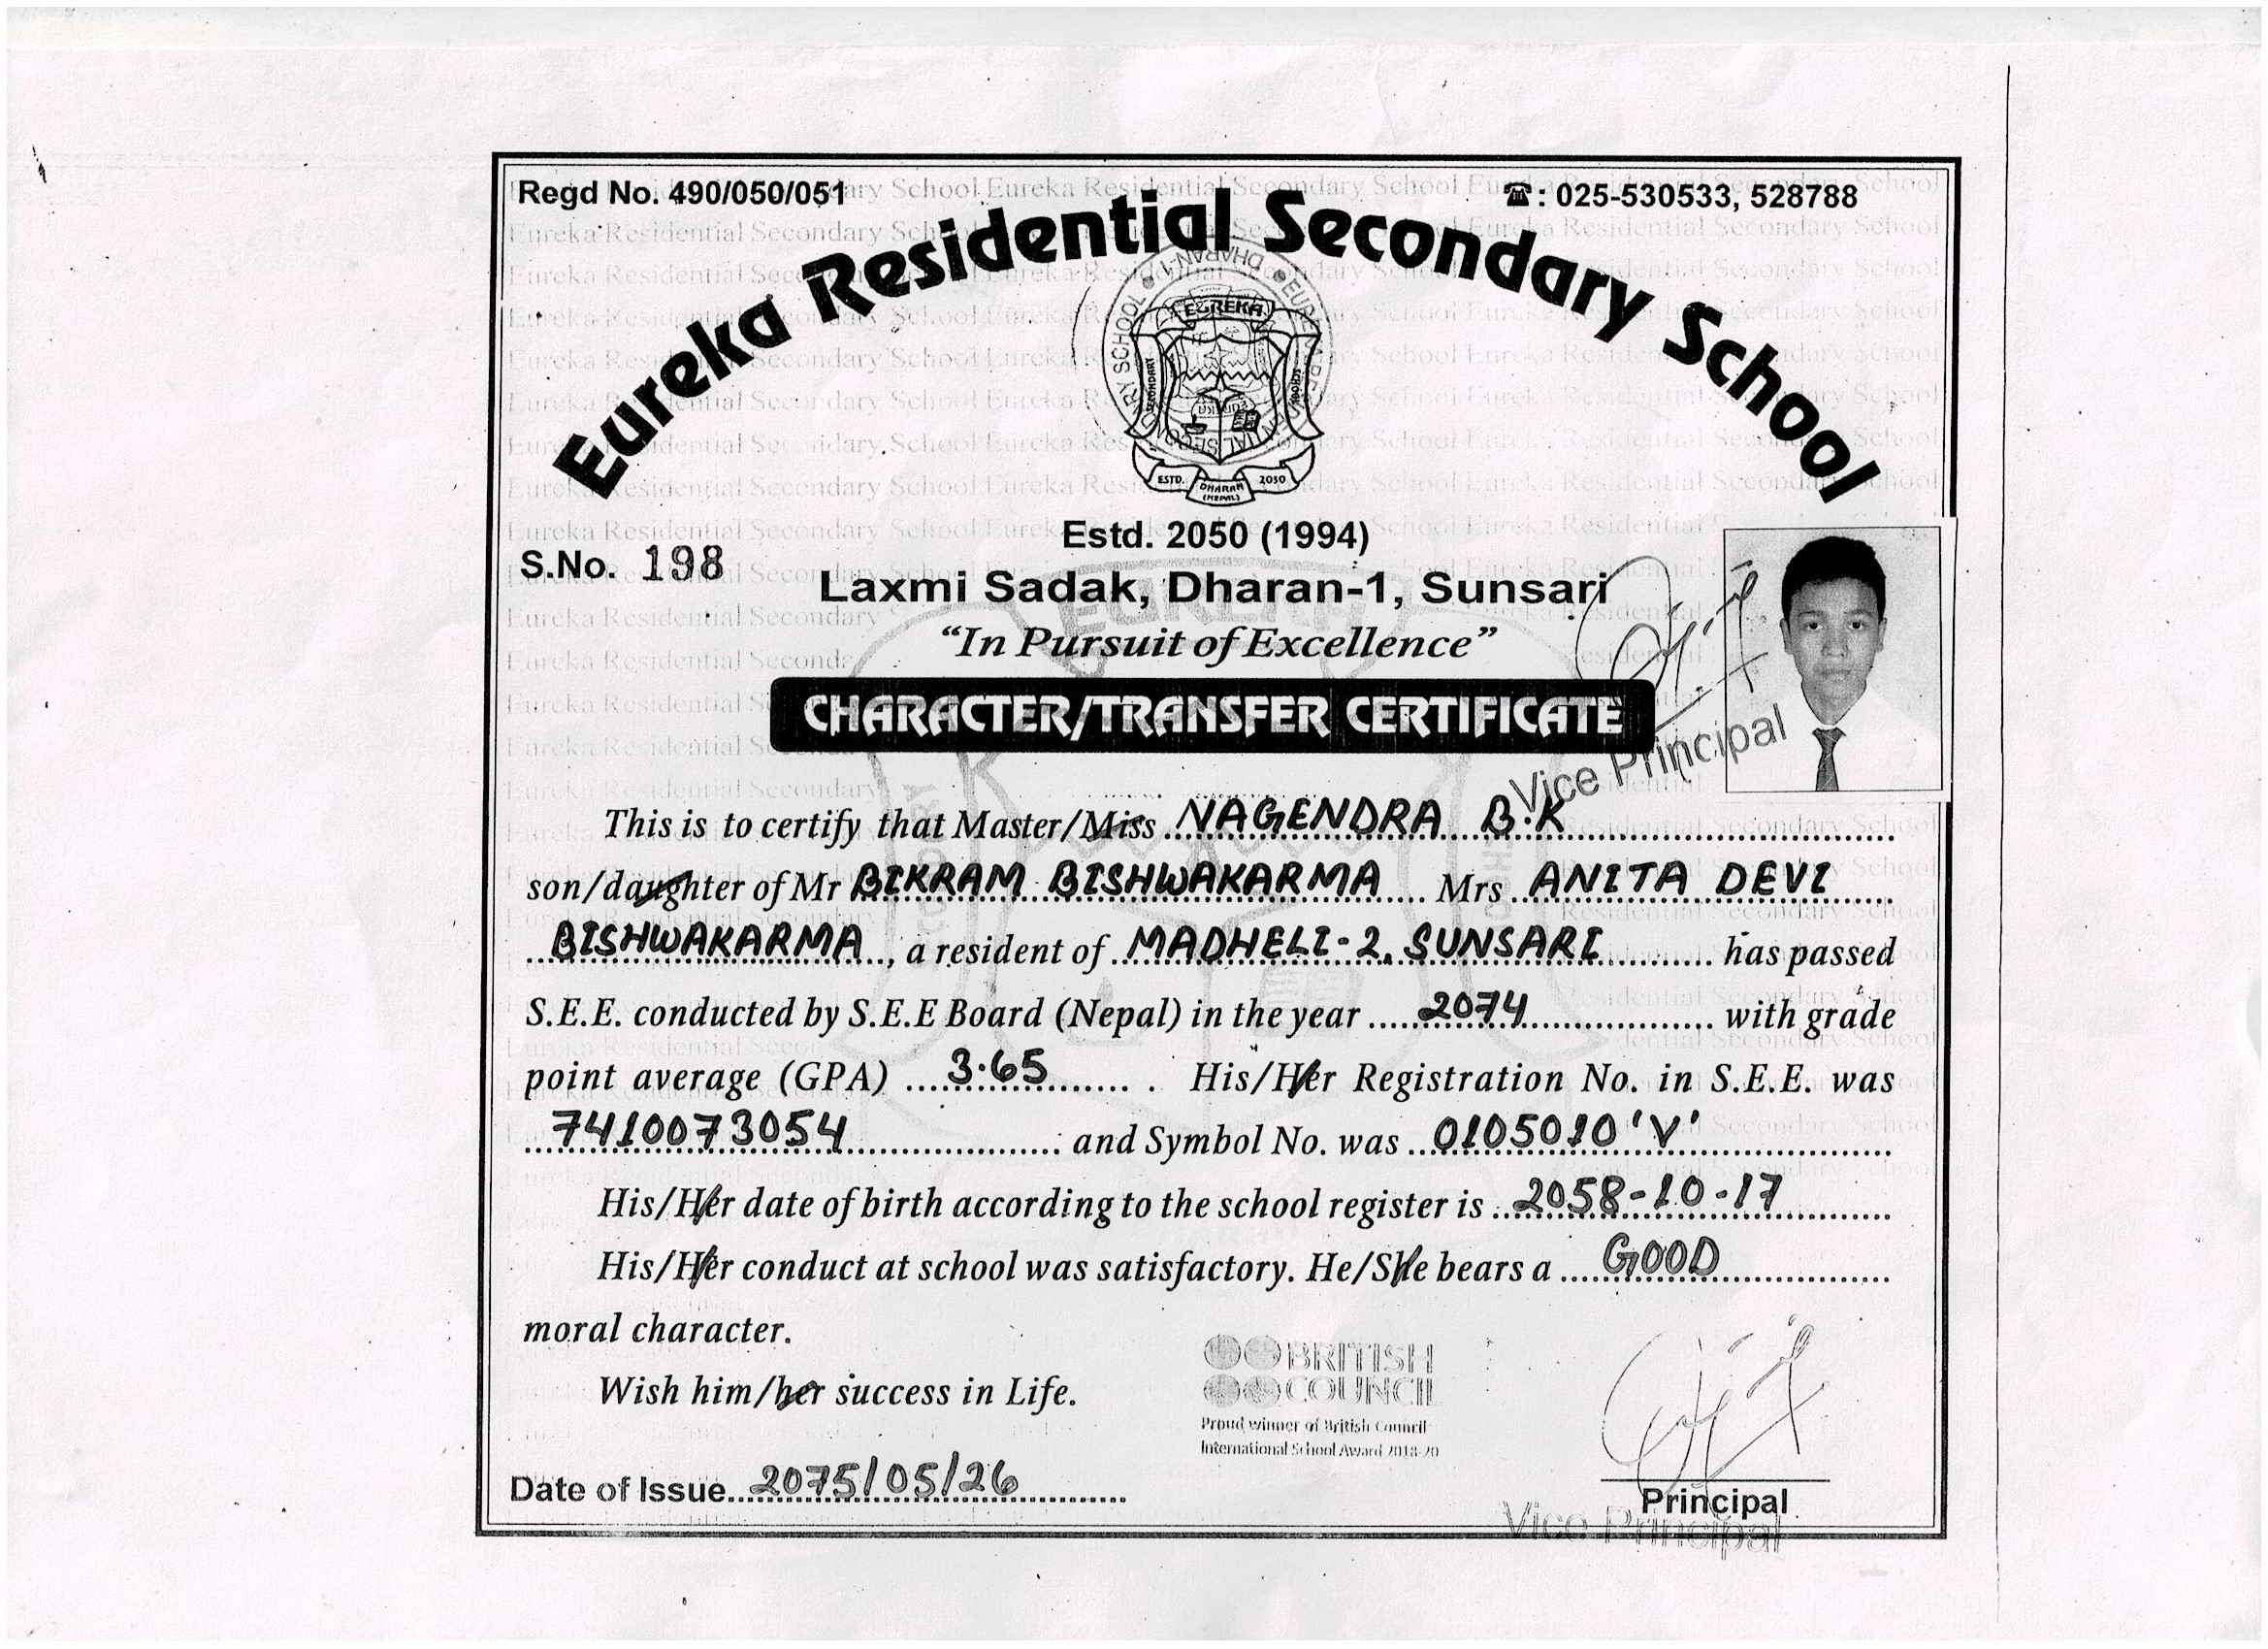 Regd No. 490/050/051
☎: 025-530533, 528788
Eureka Residential Secondary School
EUREKA
SECONDARY
SCHOOL
ESTD. DHARAN 2050
(NEPAL)
Estd. 2050 (1994)
S.No. 198
Laxmi Sadak, Dharan-1, Sunsari
“In Pursuit of Excellence”
CHARACTER/TRANSFER CERTIFICATE
Vice Principal
This is to certify that Master/Miss NAGENDRA B.K
son/daughter of Mr BIKRAM BISHWAKARMA Mrs ANITA DEVI
BISHWAKARMA, a resident of MADHELI-2, SUNSARI has passed
S.E.E. conducted by S.E.E Board (Nepal) in the year 2074 with grade
point average (GPA) 3.65. His/Her Registration No. in S.E.E. was
7410073054 and Symbol No. was 0105010 'V'
His/Her date of birth according to the school register is 2058-10-17
His/Her conduct at school was satisfactory. He/She bears a GOOD
moral character.
Wish him/her success in Life.
BRITISH
COUNCIL
Proud winner of British Council
International School Award 2018-20
Date of Issue 2075/05/26
Principal
Vice Principal